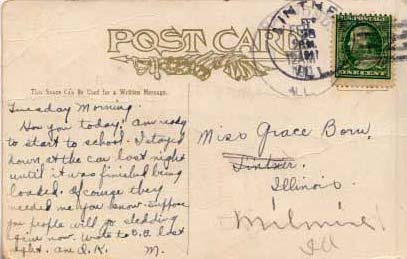 POST CARD
This Space Can Be Used for a Written Message.
Tuesday Morning.
How you today? am ready
to start to school. I stayed
down at the car last night
until it was finished being
loaded. Of course they
needed me you know. Suppose
you people will go sledding
again now. Wrote to O.O. last
night. am O.K. M.
Miss Grace Born,
Lintner.
Illinois.
Milmine
Ill
ILL.
ONE CENT